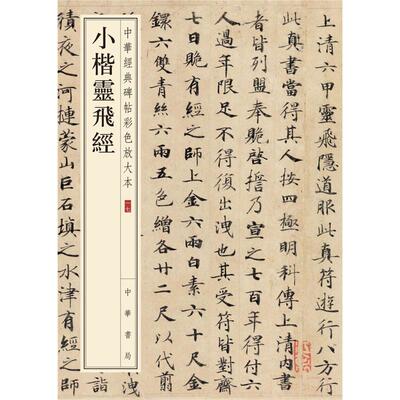 上清六甲靈飛隱道服此真符遊行八方行
此真書當得其人按四極明科傳上清內書
者皆列盟奉貺啓乃宣之七百年得付六
人過年限足不得復出洩也其受符皆對齋
七日貺有經之師上金六兩白素六十尺金
鐶六雙青絲六兩五色繒各廿二尺以代翦
中華經典碑帖彩色放大本
小楷靈飛經
中華書局
積夜之河揵蒙山巨石填之水津有經之師